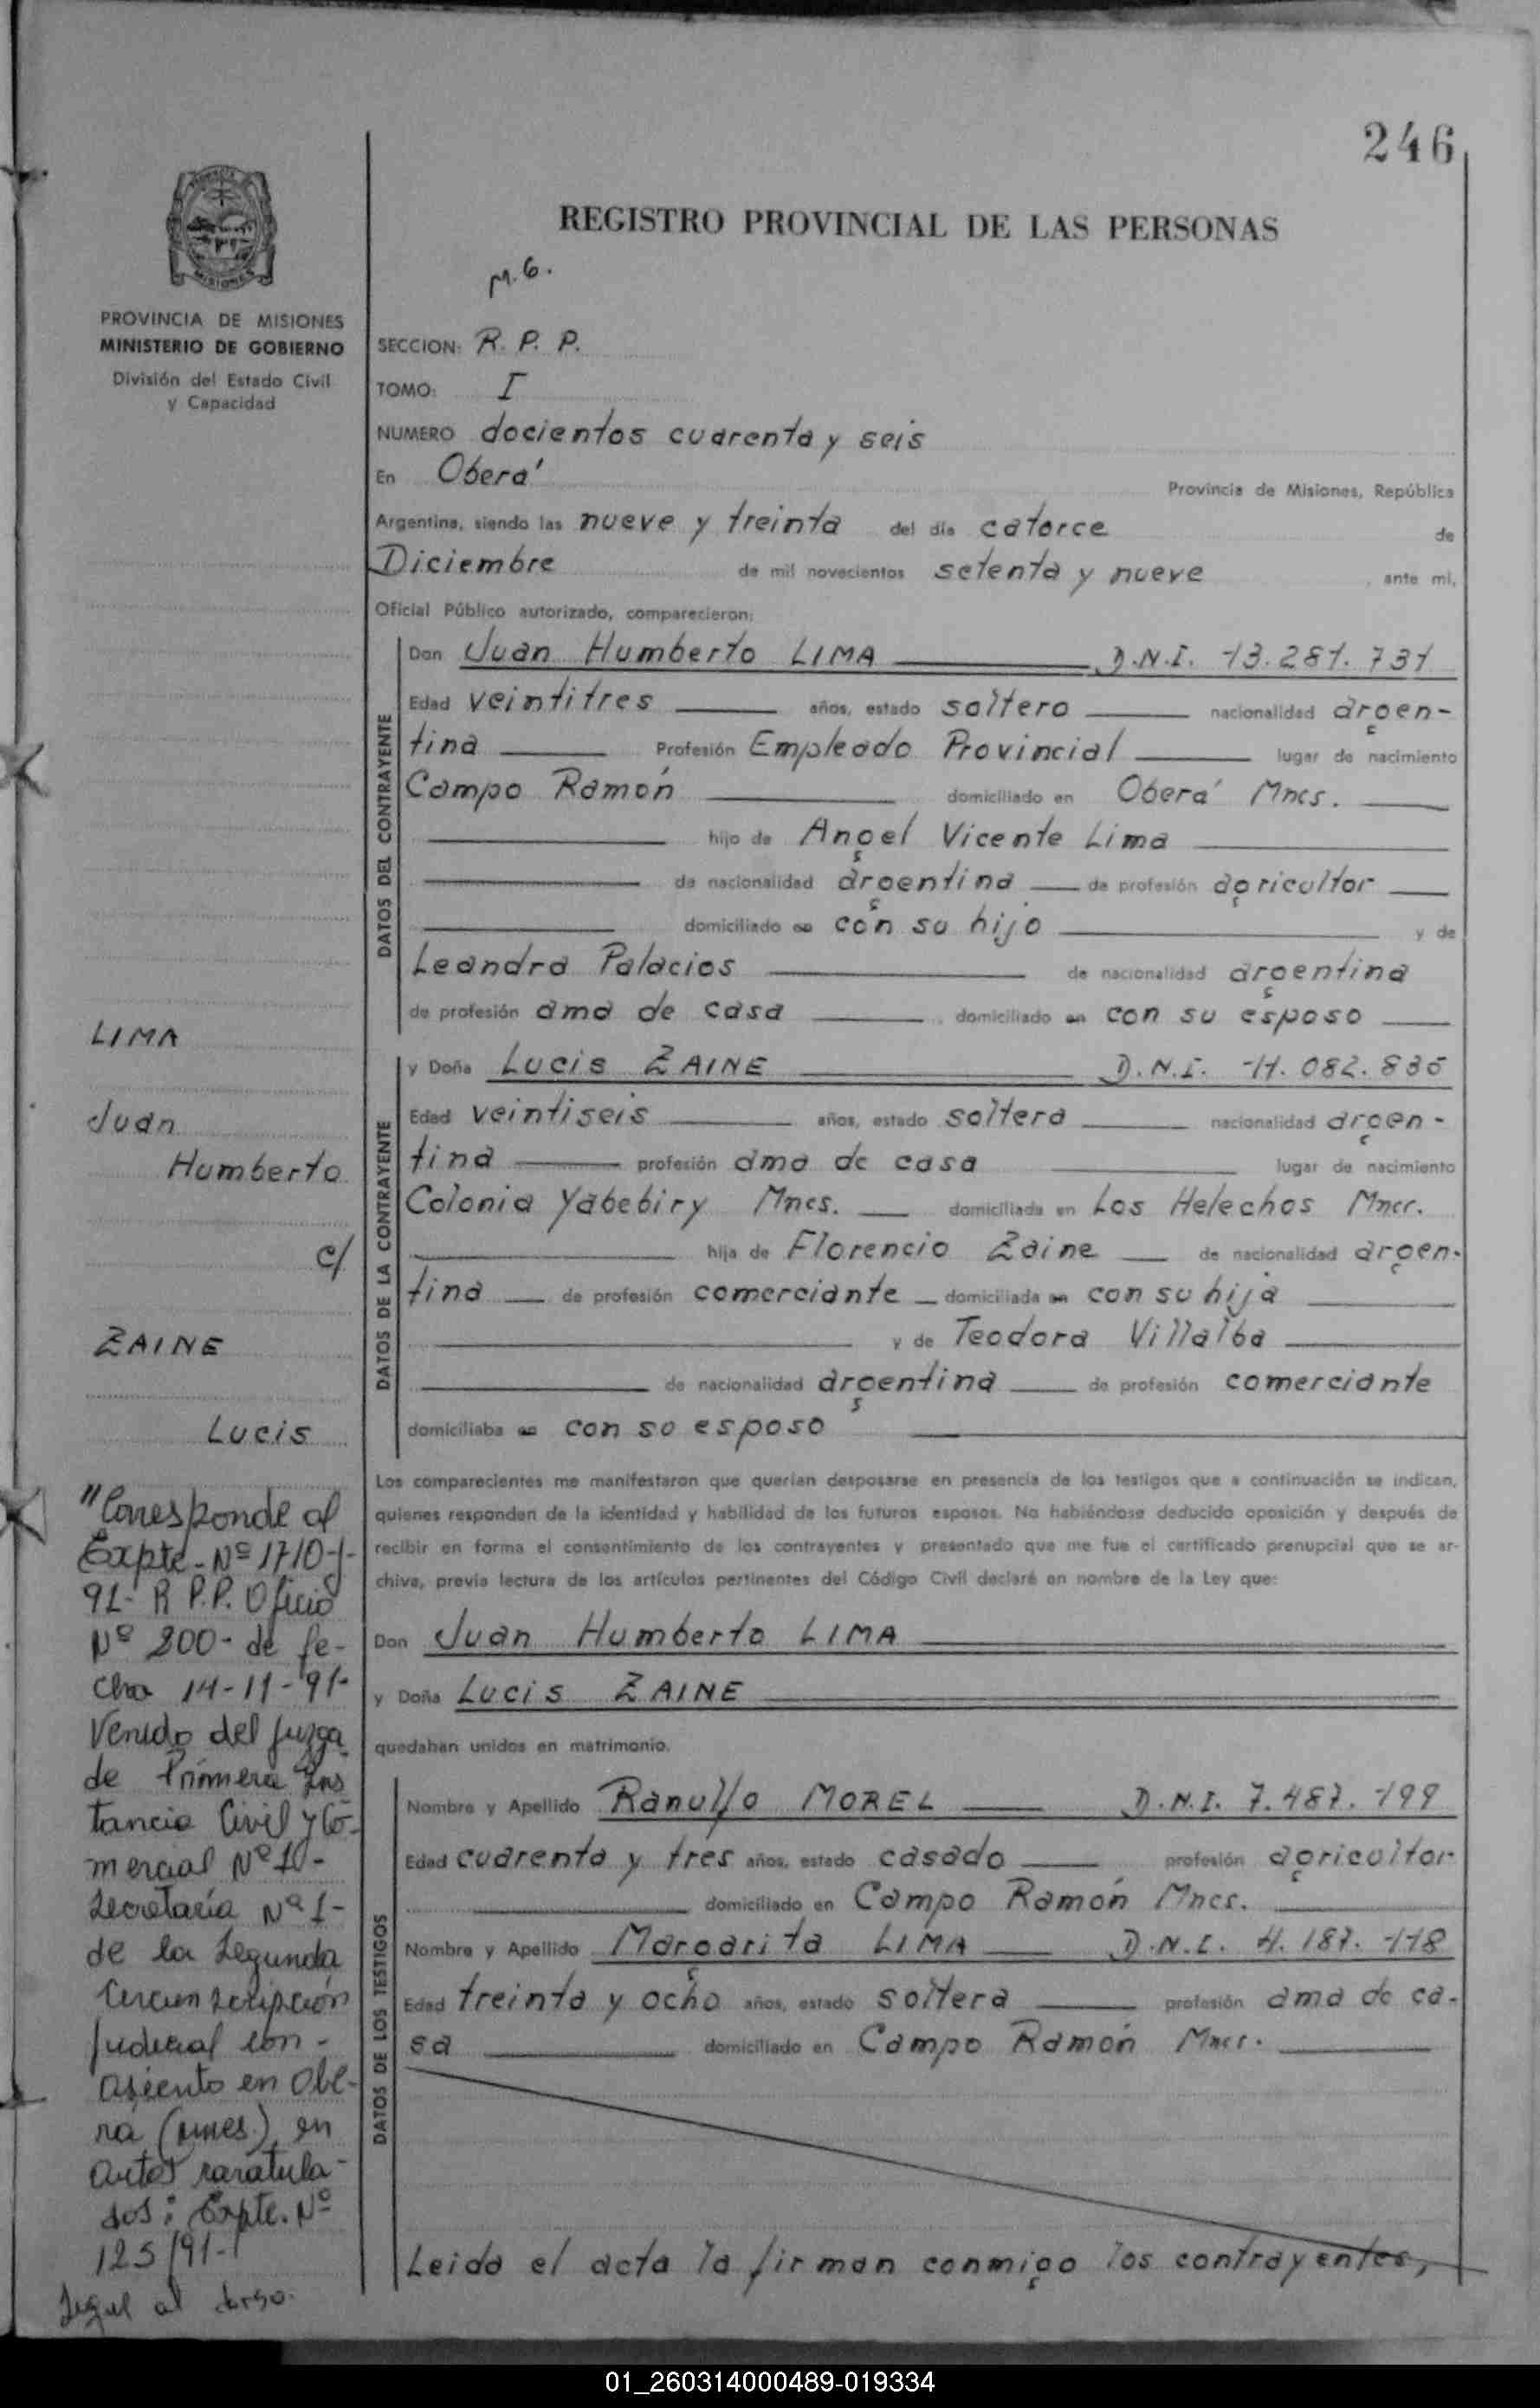 246
REGISTRO PROVINCIAL DE LAS PERSONAS
M.G.
PROVINCIA DE MISIONES
MINISTERIO DE GOBIERNO
División del Estado Civil
y Capacidad
SECCION: R. P. P.
TOMO: I
NUMERO docientos cuarenta y seis
En Oberá Provincia de Misiones, República
Argentina, siendo las nueve y treinta del día catorce de
Diciembre de mil novecientos setenta y nueve, ante mi,
Oficial Público autorizado, comparecieron:
DATOS DEL CONTRAYENTE
Don Juan Humberto LIMA D.N.I. 13.281.731
Edad veintitres años, estado soltero nacionalidad argen-
tina Profesión Empleado Provincial lugar de nacimiento
Campo Ramón domiciliado en Oberá Mnes.
hijo de Angel Vicente Lima
de nacionalidad argentina de profesión agricultor
domiciliado con su hijo y de
Leandra Palacios de nacionalidad argentina
de profesión ama de casa domiciliado con su esposo
DATOS DE LA CONTRAYENTE
y Doña Lucis ZAINE D.N.I. 11.082.836
Edad veintiseis años, estado soltera nacionalidad argen-
tina profesión ama de casa lugar de nacimiento
Colonia Yabebiry Mnes. domiciliada en Los Helechos Mnes.
hija de Florencio Zaine de nacionalidad argen-
tina de profesión comerciante domiciliada con su hija
y de Teodora Villalba
de nacionalidad argentina de profesión comerciante
domiciliaba con su esposo
Los comparecientes me manifestaron que querían desposarse en presencia de los testigos que a continuación se indican,
quienes responden de la identidad y habilidad de los futuros esposos. No habiéndose deducido oposición y después de
recibir en forma el consentimiento de los contrayentes y presentado que me fue el certificado prenupcial que se ar-
chiva, previa lectura de los artículos pertinentes del Código Civil declaré en nombre de la Ley que:
Don Juan Humberto LIMA
y Doña Lucis ZAINE
quedaban unidos en matrimonio.
DATOS DE LOS TESTIGOS
Nombre y Apellido Ranulfo MOREL D.N.I. 7.487.199
Edad cuarenta y tres años, estado casado profesión agricultor
domiciliado en Campo Ramón Mnes.
Nombre y Apellido Margarita LIMA D.N.I. 4.187.118
Edad treinta y ocho años, estado soltera profesión ama de ca-
sa domiciliado en Campo Ramón Mnes.
Leida el acta la firman conmigo los contrayentes,
LIMA
Juan
Humberto
c/
ZAINE
Lucis
"Corresponde al
Expte. Nº 1710-J-
91- R P.P. Oficio
Nº 800- de fe-
cha 14-11-91-
Venido del Juzga
de Primera Ins
tancia Civil y Co-
mercial Nº 10-
Secretaría Nº 1-
de la Segunda
Circunscripción
Judicial con-
asiento en Obe-
rá (Mnes) en
autos caratula-
dos: Expte. Nº
125/91-
Sigue al dorso.
01_260314000489-019334